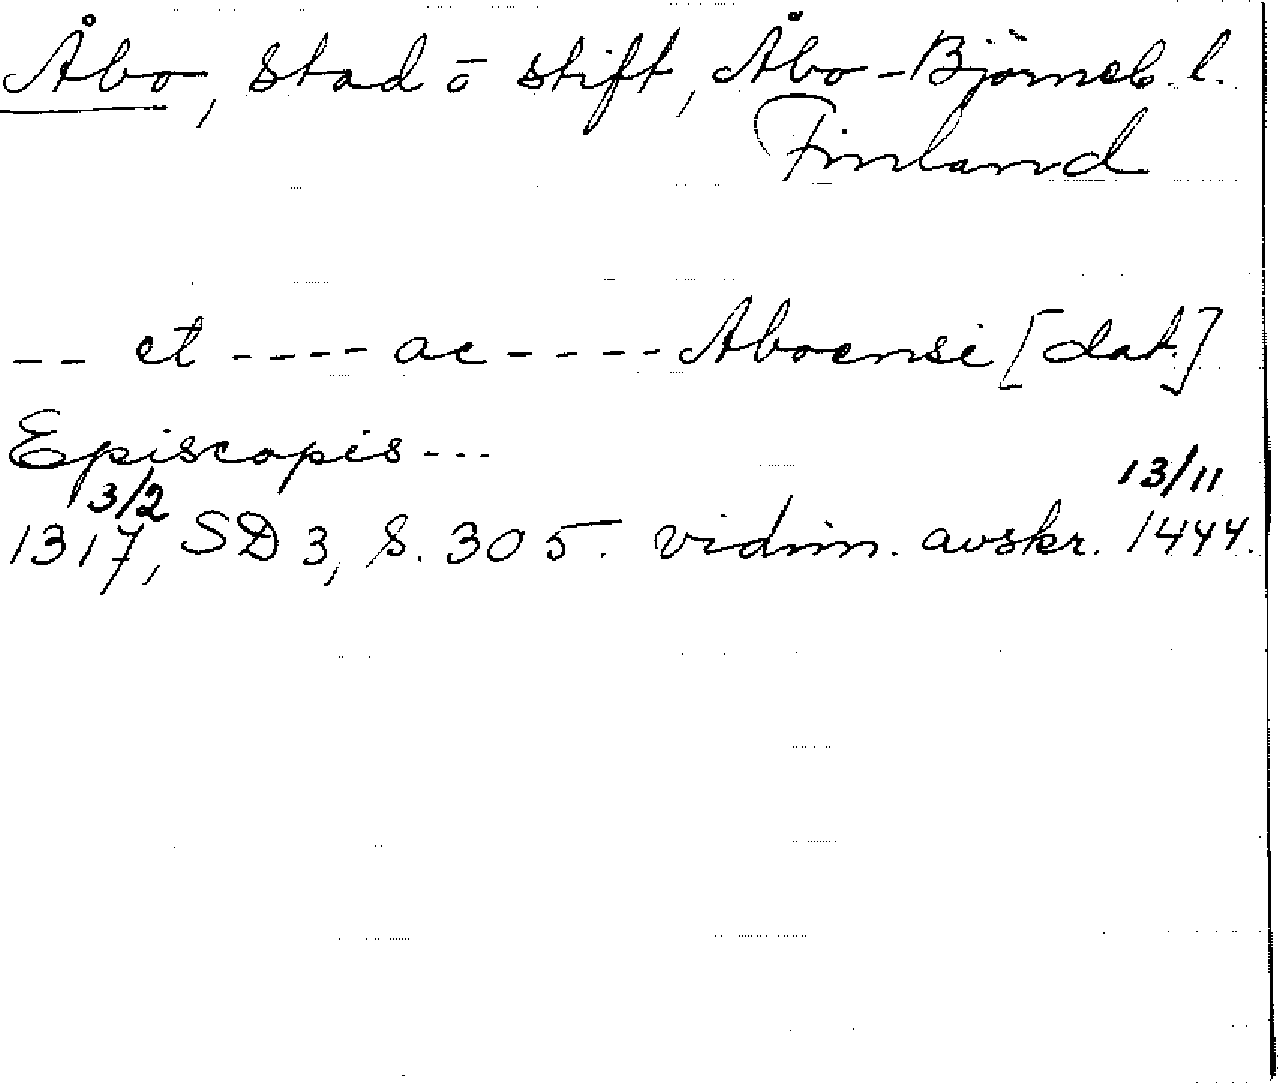 Åbo, stad o stift, Åbo-Björneb. l.
Finland
-- et ---- ac ----- Aboensi [dat.]
Episcopis ---
3/2 13/11
1317, SD 3, s. 305. vidim. avskr. 1444.